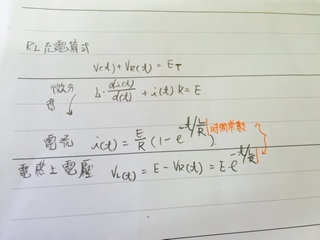 RL充電算式
V(t)+VR(t) = ET
微分得 L·di(t)/d(t) + i(t) R = E
電流 i(t) = E/R (1-e^-t/L/R) 時間常數
電感上電壓 VL(t) = E - VR(t) = E·e^-t/L/R